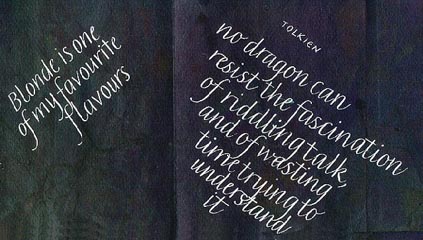 Blonde is one
of my favourite
flavours
TOLKIEN
no dragon can
resist the fascination
of riddling talk,
and of wasting
time trying to
understand
it